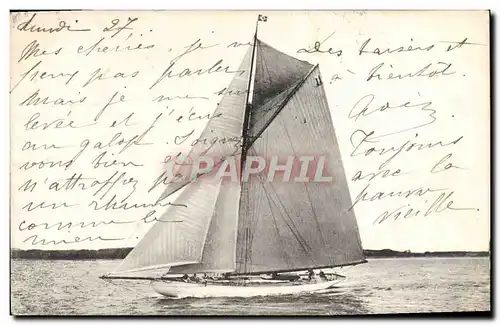 lundi 27
Mes chéries. je ne
peux pas parler
Mais je me suis
levée et j'écris
au galop. Soignez
vous bien pas
n'attrappez pas
un rhume
comme le
mien
Des baisers et
à bientôt.
Toujours
avec la
pauvre
vieille
CPARAMA